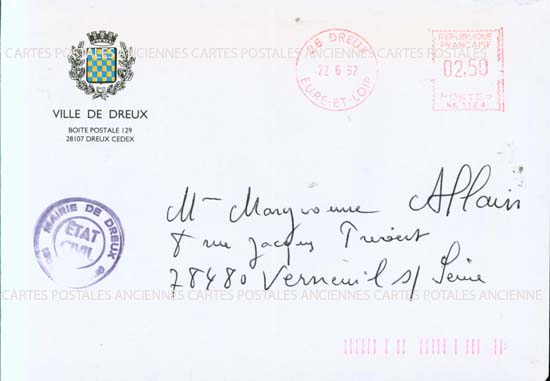 CARTES POSTALES ANCIENNES CARTES POSTALES ANCIENNES CARTES POSTALES ANCIENNE
VILLE DE DREUX
BOITE POSTALE 129
28107 DREUX CEDEX
28 DREUX
22 6 92
EURE-ET-LOIR
REPUBLIQUE
FRANCAISE
02,50
POSTES
MAIRIE DE DREUX
ETAT
CIVIL
Mme Maryvonne Allain
8 rue Jacques Prévert
78480 Verneuil s/ Seine
CARTES POSTALES ANCIENNES CARTES POSTALES ANCIENNES CARTES POSTALES ANCIENNE